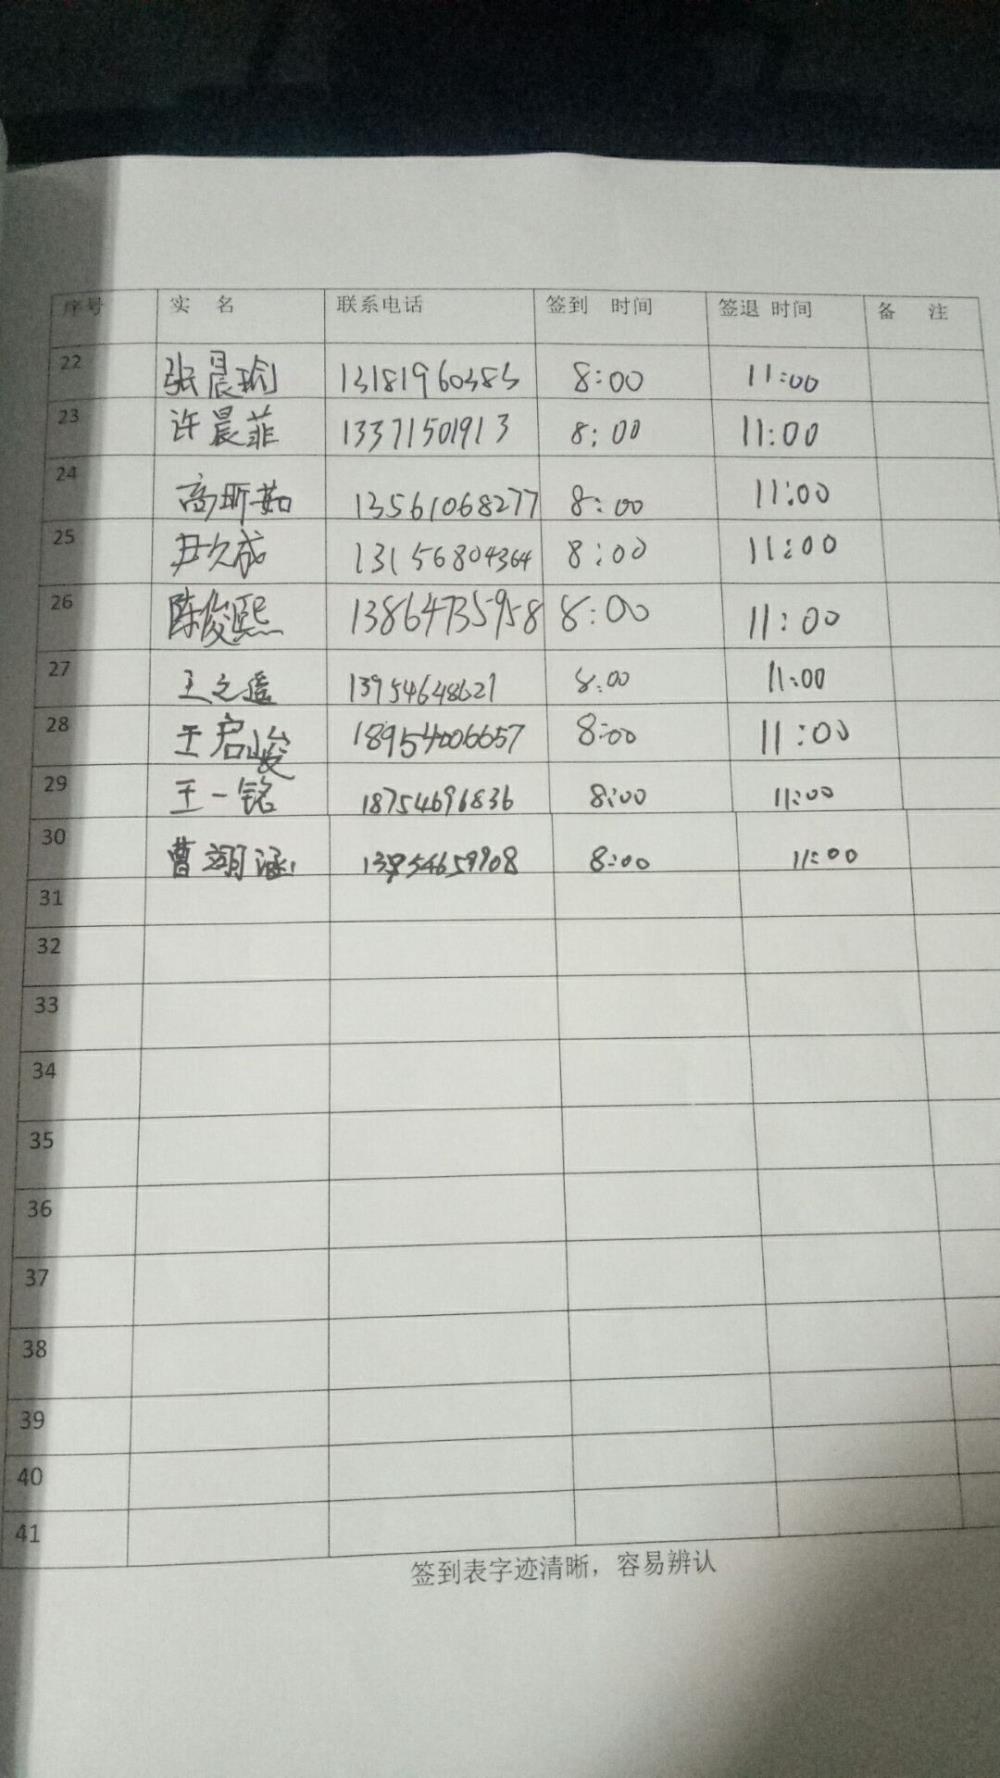 序号 实 名 联系电话 签到 时间 签退 时间 备 注
22 张晨瑜 13181960383 8:00 11:00
23 许晨菲 13371501913 8:00 11:00
24 高昕茹 13561068277 8:00 11:00
25 尹久成 13156804364 8:00 11:00
26 陈俊熙 13864735958 8:00 11:00
27 王之遥 13954648621 8:00 11:00
28 王启峻 18954006657 8:00 11:00
29 王一铭 18754696836 8:00 11:00
30 曹翊涵 8:00 11:00
31
32
33
34
35
36
37
38
39
40
41
签到表字迹清晰，容易辨认